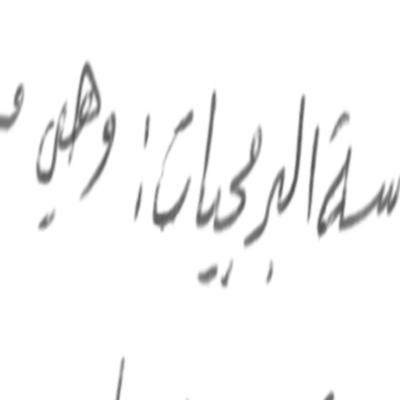 سة البرمجيات: وهي